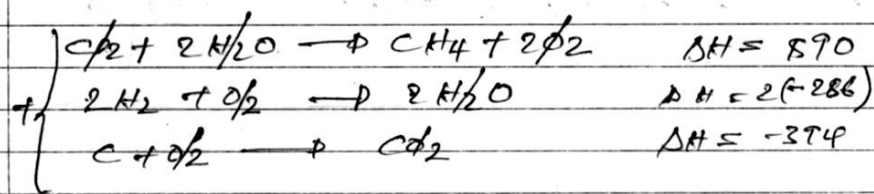 CO2 + 2H2O → CH4 + 2O2 ΔH = 890
+ 2H2 + O2 → 2H2O ΔH = 2(-286)
C + O2 → CO2 ΔH = -394